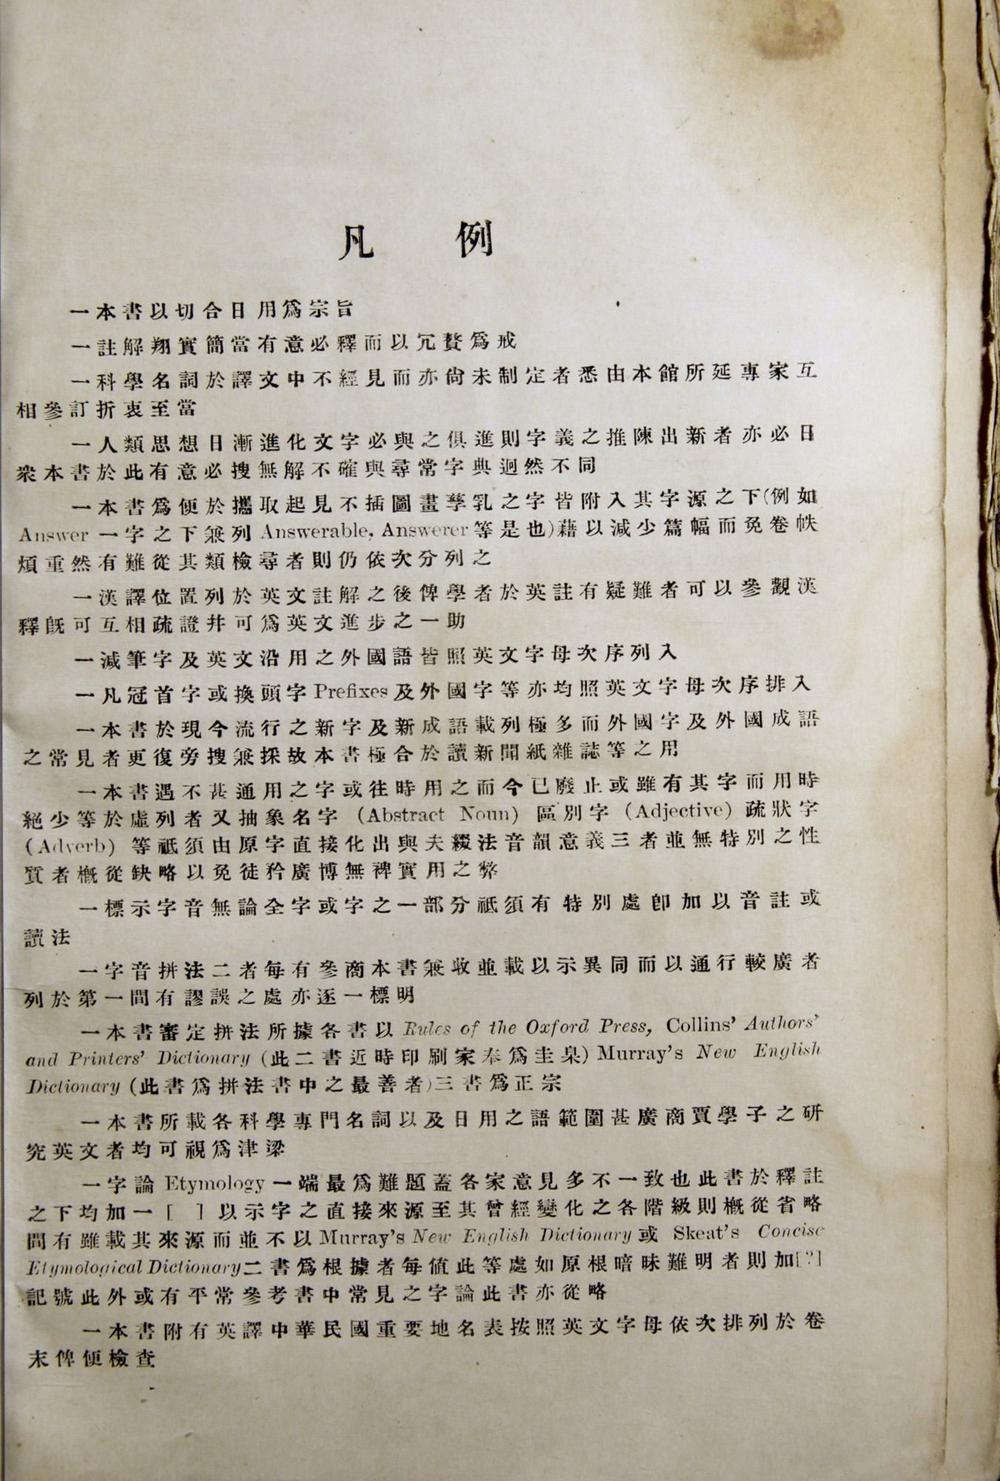 凡例
一本書以切合日用爲宗旨
一註解翔實簡當有意必釋而以冗贅爲戒
一科學名詞於譯文中不經見而亦尙未制定者悉由本館所延專家互
相參訂折衷至當
一人類思想日漸進化文字必與之俱進則字義之推陳出新者亦必日
衆本書於此有意必搜無解不確與尋常字典迥然不同
一本書爲便於攜取起見不插圖畫孳乳之字皆附入其字源之下(例如
Answer 一字之下兼列 Answerable, Answerer 等是也)藉以減少篇幅而免卷帙
煩重然有難從其類檢尋者則仍依次分列之
一漢譯位置列於英文註解之後俾學者於英註有疑難者可以參觀漢
釋旣可互相疏證幷可爲英文進步之一助
一減筆字及英文沿用之外國語皆照英文字母次序列入
一凡冠首字或換頭字 Prefixes 及外國字等亦均照英文字母次序排入
一本書於現今流行之新字及新成語載列極多而外國字及外國成語
之常見者更復旁搜兼採故本書極合於讀新聞紙雜誌等之用
一本書遇不甚通用之字或往時用之而今已廢止或雖有其字而用時
絕少等於虛列者又抽象名字 (Abstract Noun) 區別字 (Adjective) 疏狀字
(Adverb) 等祗須由原字直接化出與夫綴法音韻意義三者並無特別之性
質者槪從缺略以免徒矜廣博無裨實用之弊
一標示字音無論全字或字之一部分祗須有特別處卽加以音註或
讀法
一字音拼法二者每有參商本書兼收並載以示異同而以通行較廣者
列於第一間有謬誤之處亦逐一標明
一本書審定拼法所據各書以 Rules of the Oxford Press, Collins' Authors'
and Printers' Dictionary (此二書近時印刷家奉爲圭臬) Murray's New English
Dictionary (此書爲拼法書中之最善者)三書爲正宗
一本書所載各科學專門名詞以及日用之語範圍甚廣商賈學子之研
究英文者均可視爲津梁
一字論 Etymology 一端最爲難題蓋各家意見多不一致也此書於釋註
之下均加一 [ ] 以示字之直接來源至其曾經變化之各階級則槪從省略
間有雖載其來源而並不以 Murray's New English Dictionary 或 Skeat's Concise
Etymological Dictionary 二書爲根據者每値此等處如原根暗昧難明者則加[?]
記號此外或有平常參考書中常見之字論此書亦從略
一本書附有英譯中華民國重要地名表按照英文字母依次排列於卷
末俾便檢查